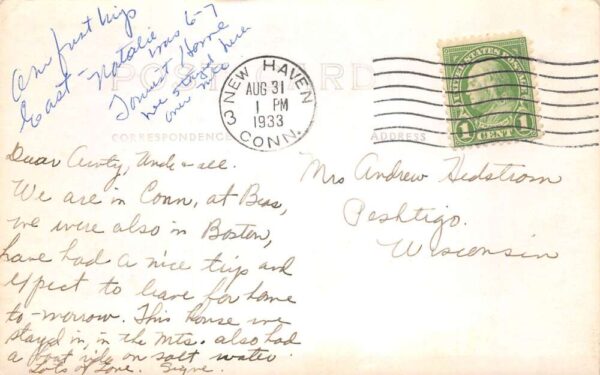 Our first trip
East - Natalie
was 6-7
Tourist Home
we stayed here
over nite
POST CARD
NEW HAVEN
AUG 31
1 PM
1933
3
CONN.
UNITED STATES POSTAGE
1 CENT 1
CORRESPONDENCE
ADDRESS
Dear Aunty, Uncle & all.
We are in Conn, at Bess,
we were also in Boston,
have had a nice trip and
expect to leave for home
to-morrow. This house we
stayed in, in the Mts. also had
a boat ride on salt water.
Lots of Love. Signe.
Mrs Andrew Hedstrom
Peshtigo.
Wisconsin